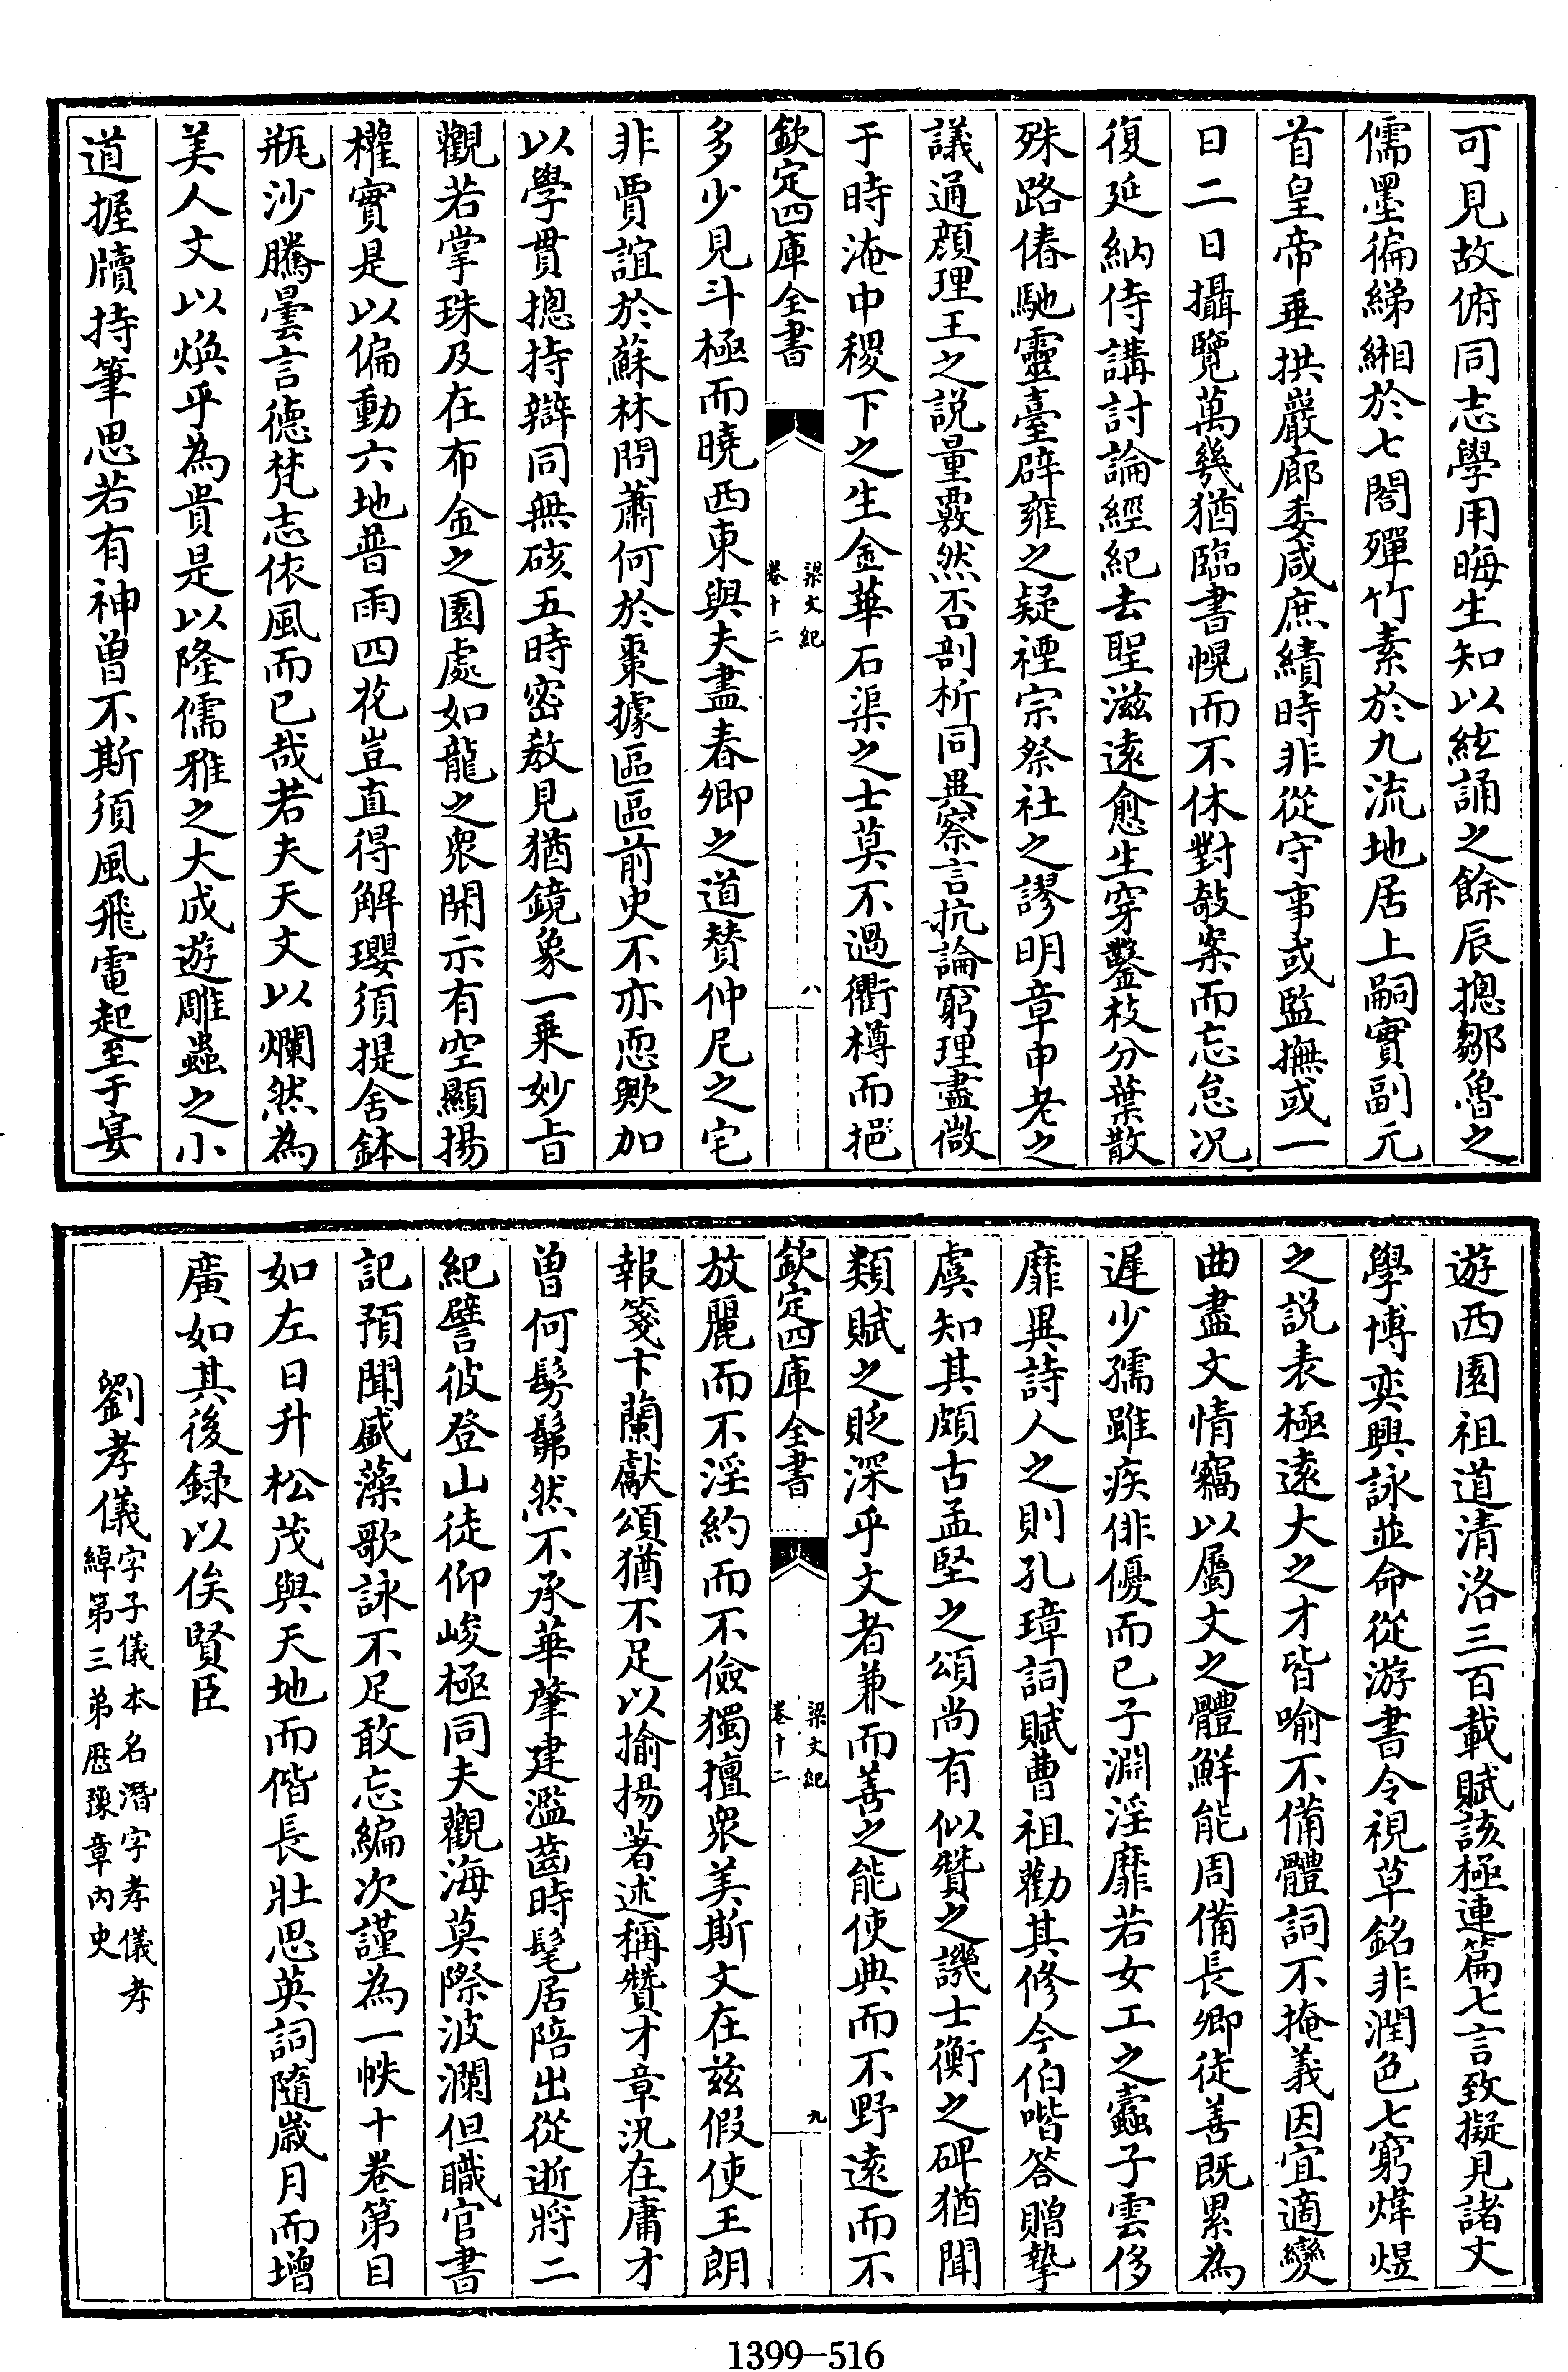 可見故俯同志學用晦生知以絃誦之餘辰摠鄒魯之
儒墨徧綈緗於七閣殫竹素於九流地居上嗣實副元
首皇帝垂拱巖廊委咸庶績時非從守事或監撫或一
日二日攝覽萬幾猶臨書幌而不休對敧案而忘怠况
復延納侍講討論經紀去聖滋遠愈生穿鑿枝分葉散
殊路偆馳靈臺辟雍之疑禋宗祭社之謬明章申老之
議通顔理王之説量覈然否剖析同異察言抗論窮理盡微
于時淹中稷下之生金華石渠之士莫不過衢樽而挹
欽定四庫全書
梁文紀
卷十二
八
多少見斗極而曉西東與夫盡春卿之道贊仲尼之宅
非賈誼於蘇林問蕭何於棗據區區前史不亦恧歟加
以學貫摠持辯同無硋五時密教見猶鏡象一乗妙旨
觀若掌珠及在布金之園處如龍之衆開示有空顯揚
權實是以偏動六地普雨四花豈直得解瓔須提舍鉢
瓶沙騰曇言德梵志依風而已哉若夫天文以爛然為
美人文以煥乎為貴是以隆儒雅之大成遊雕蟲之小
道握牘持筆思若有神曽不斯須風飛電起至于宴
遊西園祖道清洛三百載賦該極連篇七言致擬見諸文
學博奕興詠並命從游書令視草銘非潤色七窮煒煜
之説表極遠大之才皆喻不備體詞不掩義因宜適變
曲盡文情竊以屬文之體鮮能周備長卿徒善既累為
遲少孺雖疾俳優而已子淵淫靡若女工之蠹子雲侈
靡異詩人之則孔璋詞賦曹祖勸其修今伯喈答贈摯
虞知其頗古孟堅之頌尚有似贊之譏士衡之碑猶聞
類賦之貶深乎文者兼而善之能使典而不野遠而不
欽定四庫全書
梁文紀
卷十二
九
放麗而不淫約而不儉獨擅衆美斯文在兹假使王朗
報箋卞蘭獻頌猶不足以揄揚著述稱贊才章况在庸才
曽何髣髴然不承華肇建濫齒時髦居陪出從逝將二
紀譬彼登山徒仰峻極同夫觀海莫際波瀾但職官書
記預聞盛藻歌詠不足敢忘編次謹為一帙十卷第目
如左日升松茂與天地而偕長壯思英詞隨嵗月而增
廣如其後録以俟賢臣
劉孝儀字子儀本名潛字孝儀孝
綽第三弟歴豫章內史
1399—516